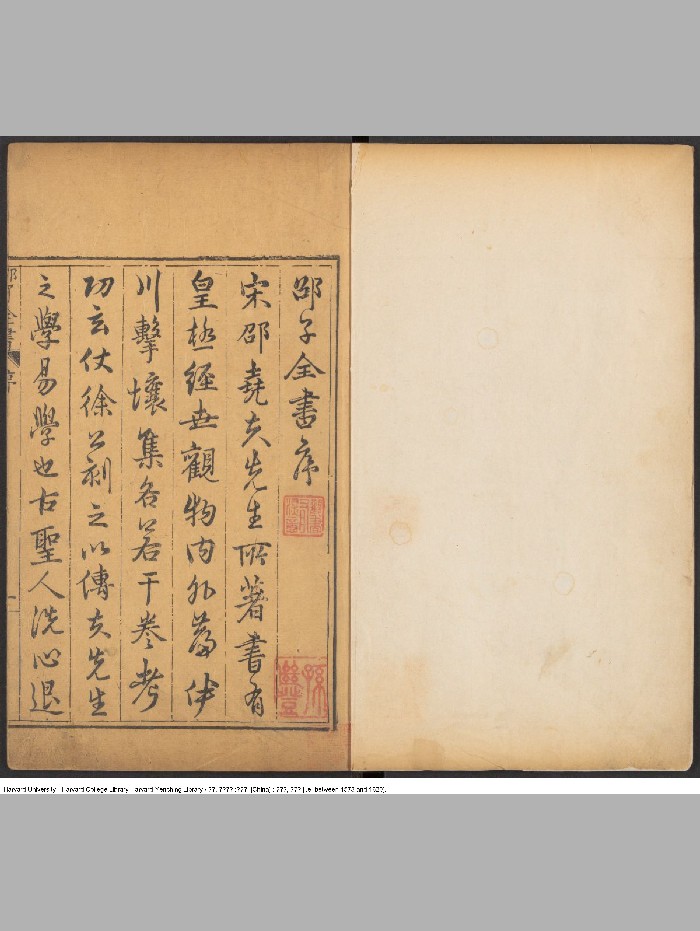 邵子全書序
宋邵堯夫先生所著書有
皇極經世觀物內外篇伊
川擊壤集各若干卷考
功玄仗徐公刻之以傳夫先生
之學易學也古聖人洗心退
邵子全書 序
Harvard University - Harvard College Library Harvard-Yenching Library / ??. ???? :???. [China] : ???, ??? [i.e. between 1573 and 1620].